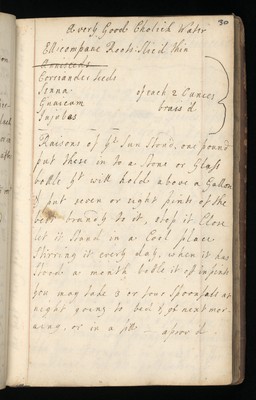 30
A very Good Cholick Water
Ellicompane Roots: Slic'd thin
Anniseeds
Correander seeds
Senna
of each 2 Ounces
Guaicum
brais'd
Jujobes
Raisons of ye Sun Ston'd, one pound
put these in to a Stone or Glass
bottle yt will hold above a Gallon
& put seven or eight pints of the
best brandy to it, stop it Close
let it Stand in a Cool place
Stirring it every day, when it has
Stood a month bottle it of in pints
you may take 3 or four Spoonfuls at
night going to bed & ye next mor-
ning, or in a fitt —